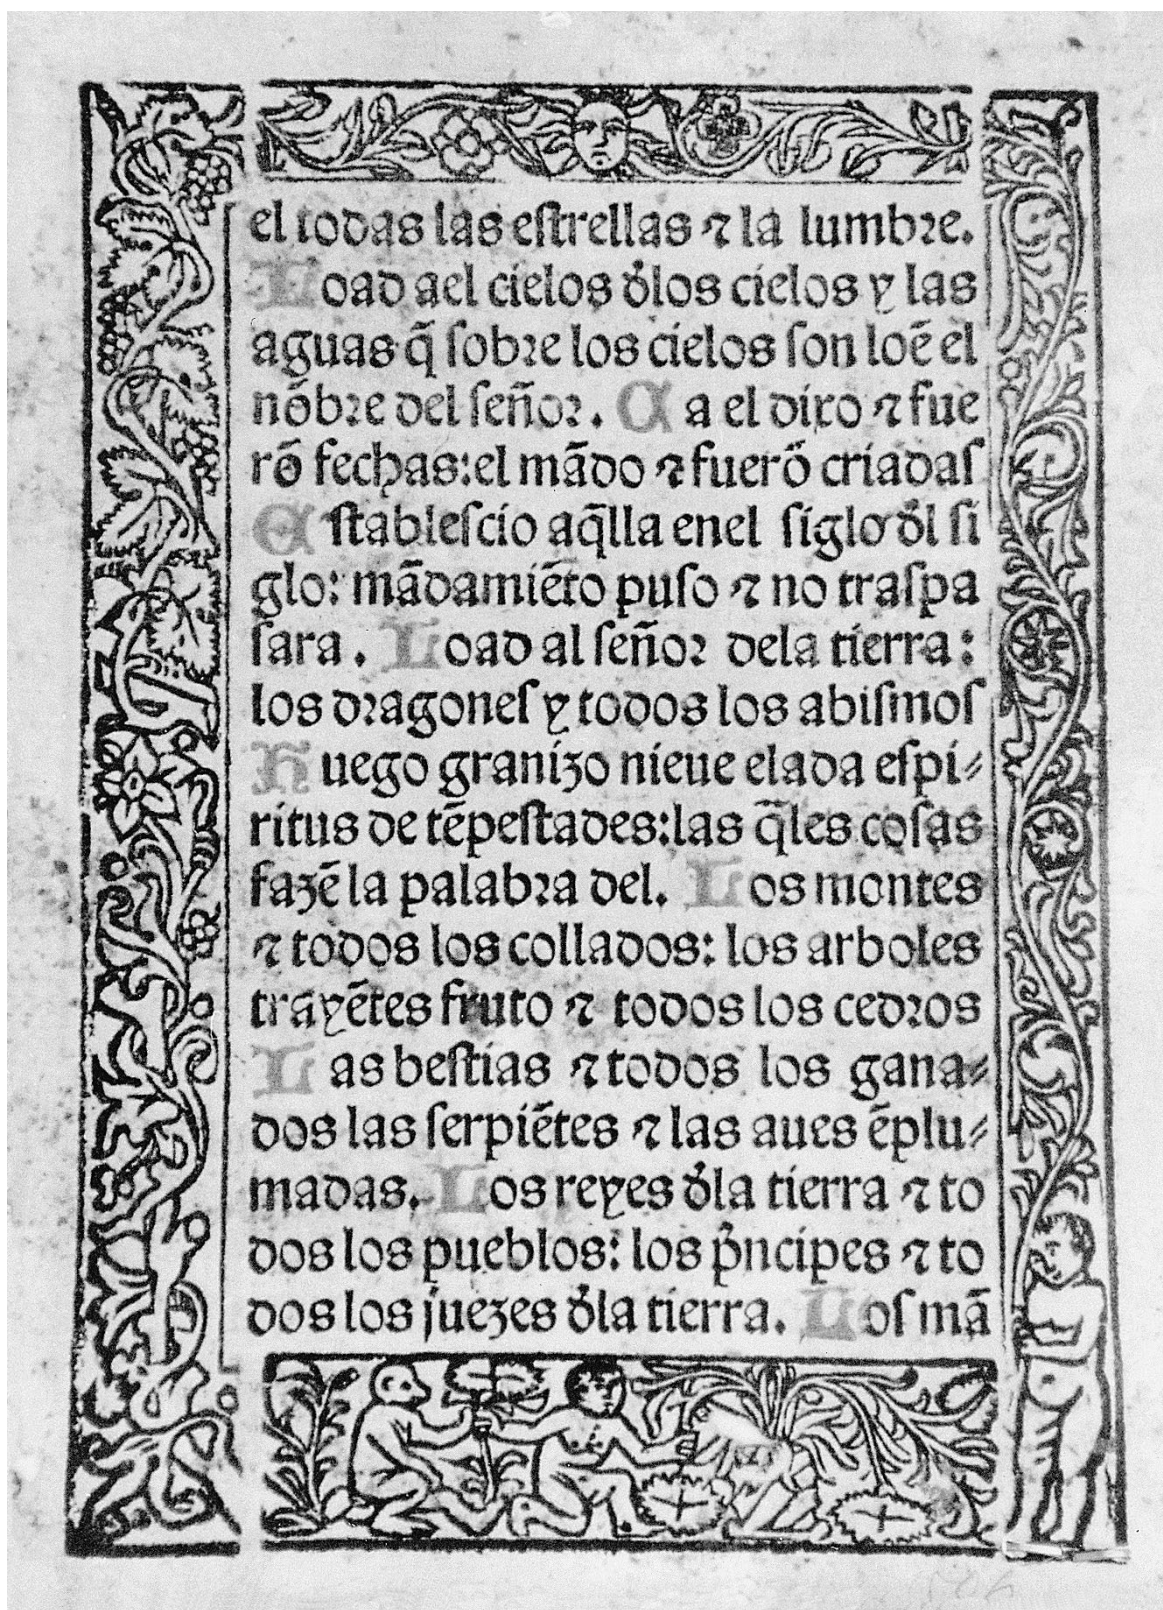 el todas las eſtrellas ⁊ la lumbꝛe.
Load ael cielos d̉los cielos y las
aguas q̃ ſobꝛe los cielos ſon loẽ el
nõbꝛe del ſeñoꝛ. Ca el dixo ⁊ fue
rõ fechas:el mãdo ⁊ fuerõ criadaſ
Eſtableſcio aq̃lla enel ſiglo d̉l ſi
glo: mãdamiẽto puſo ⁊ no traſpa
ſara. Load al ſeñoꝛ dela tierra:
los dꝛagoneſ y todos los abiſmoſ
Huego granizo nieue elada eſpi⸗
ritus de tẽpeſtades:las q̃les coſas
fazẽ la palabꝛa del. Los montes
⁊ todos los collados: los arboles
trayẽtes fruto ⁊ todos los cedꝛos
Las beſtias ⁊ todos los gana⸗
dos las ſerpiẽtes ⁊ las aues ẽplu⸗
madas. Los reyes d̉la tierra ⁊ to
dos los pueblos: los p̉ncipes ⁊ to
dos los juezes d̉la tierra. Loſ mã